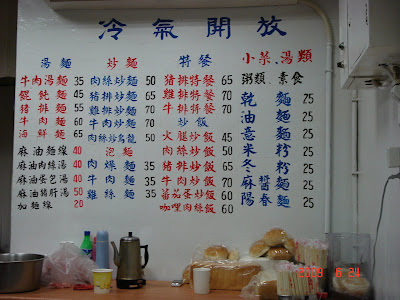 冷氣開放
湯麵
牛肉湯麵 35
餛飩麵 45
豬排麵 55
牛肉麵 60
海鮮麵 65
麻油麵線 40
麻油肉絲湯 40
麻油蛋包湯 40
麻油豬肝湯 50
加麵線 20
炒麵
肉絲炒麵 50
豬排炒麵 65
雞排炒麵 65
牛肉炒麵 60
肉絲炒烏龍 50
泡麵
肉燥麵 35
牛肉麵 35
雞絲麵 35
特餐
豬排特餐 65
雞排特餐 70
牛排特餐 70
炒飯
火腿炒飯 45
肉絲炒飯 50
豬排炒飯 65
牛肉炒飯 70
蕃茄蛋炒飯 60
咖哩肉絲飯 60
小菜.湯類
粥類.素食
乾麵 25
油麵 25
意麵 25
米粉 25
冬粉 25
麻醬麵 25
陽春麵 25
2009 6 24